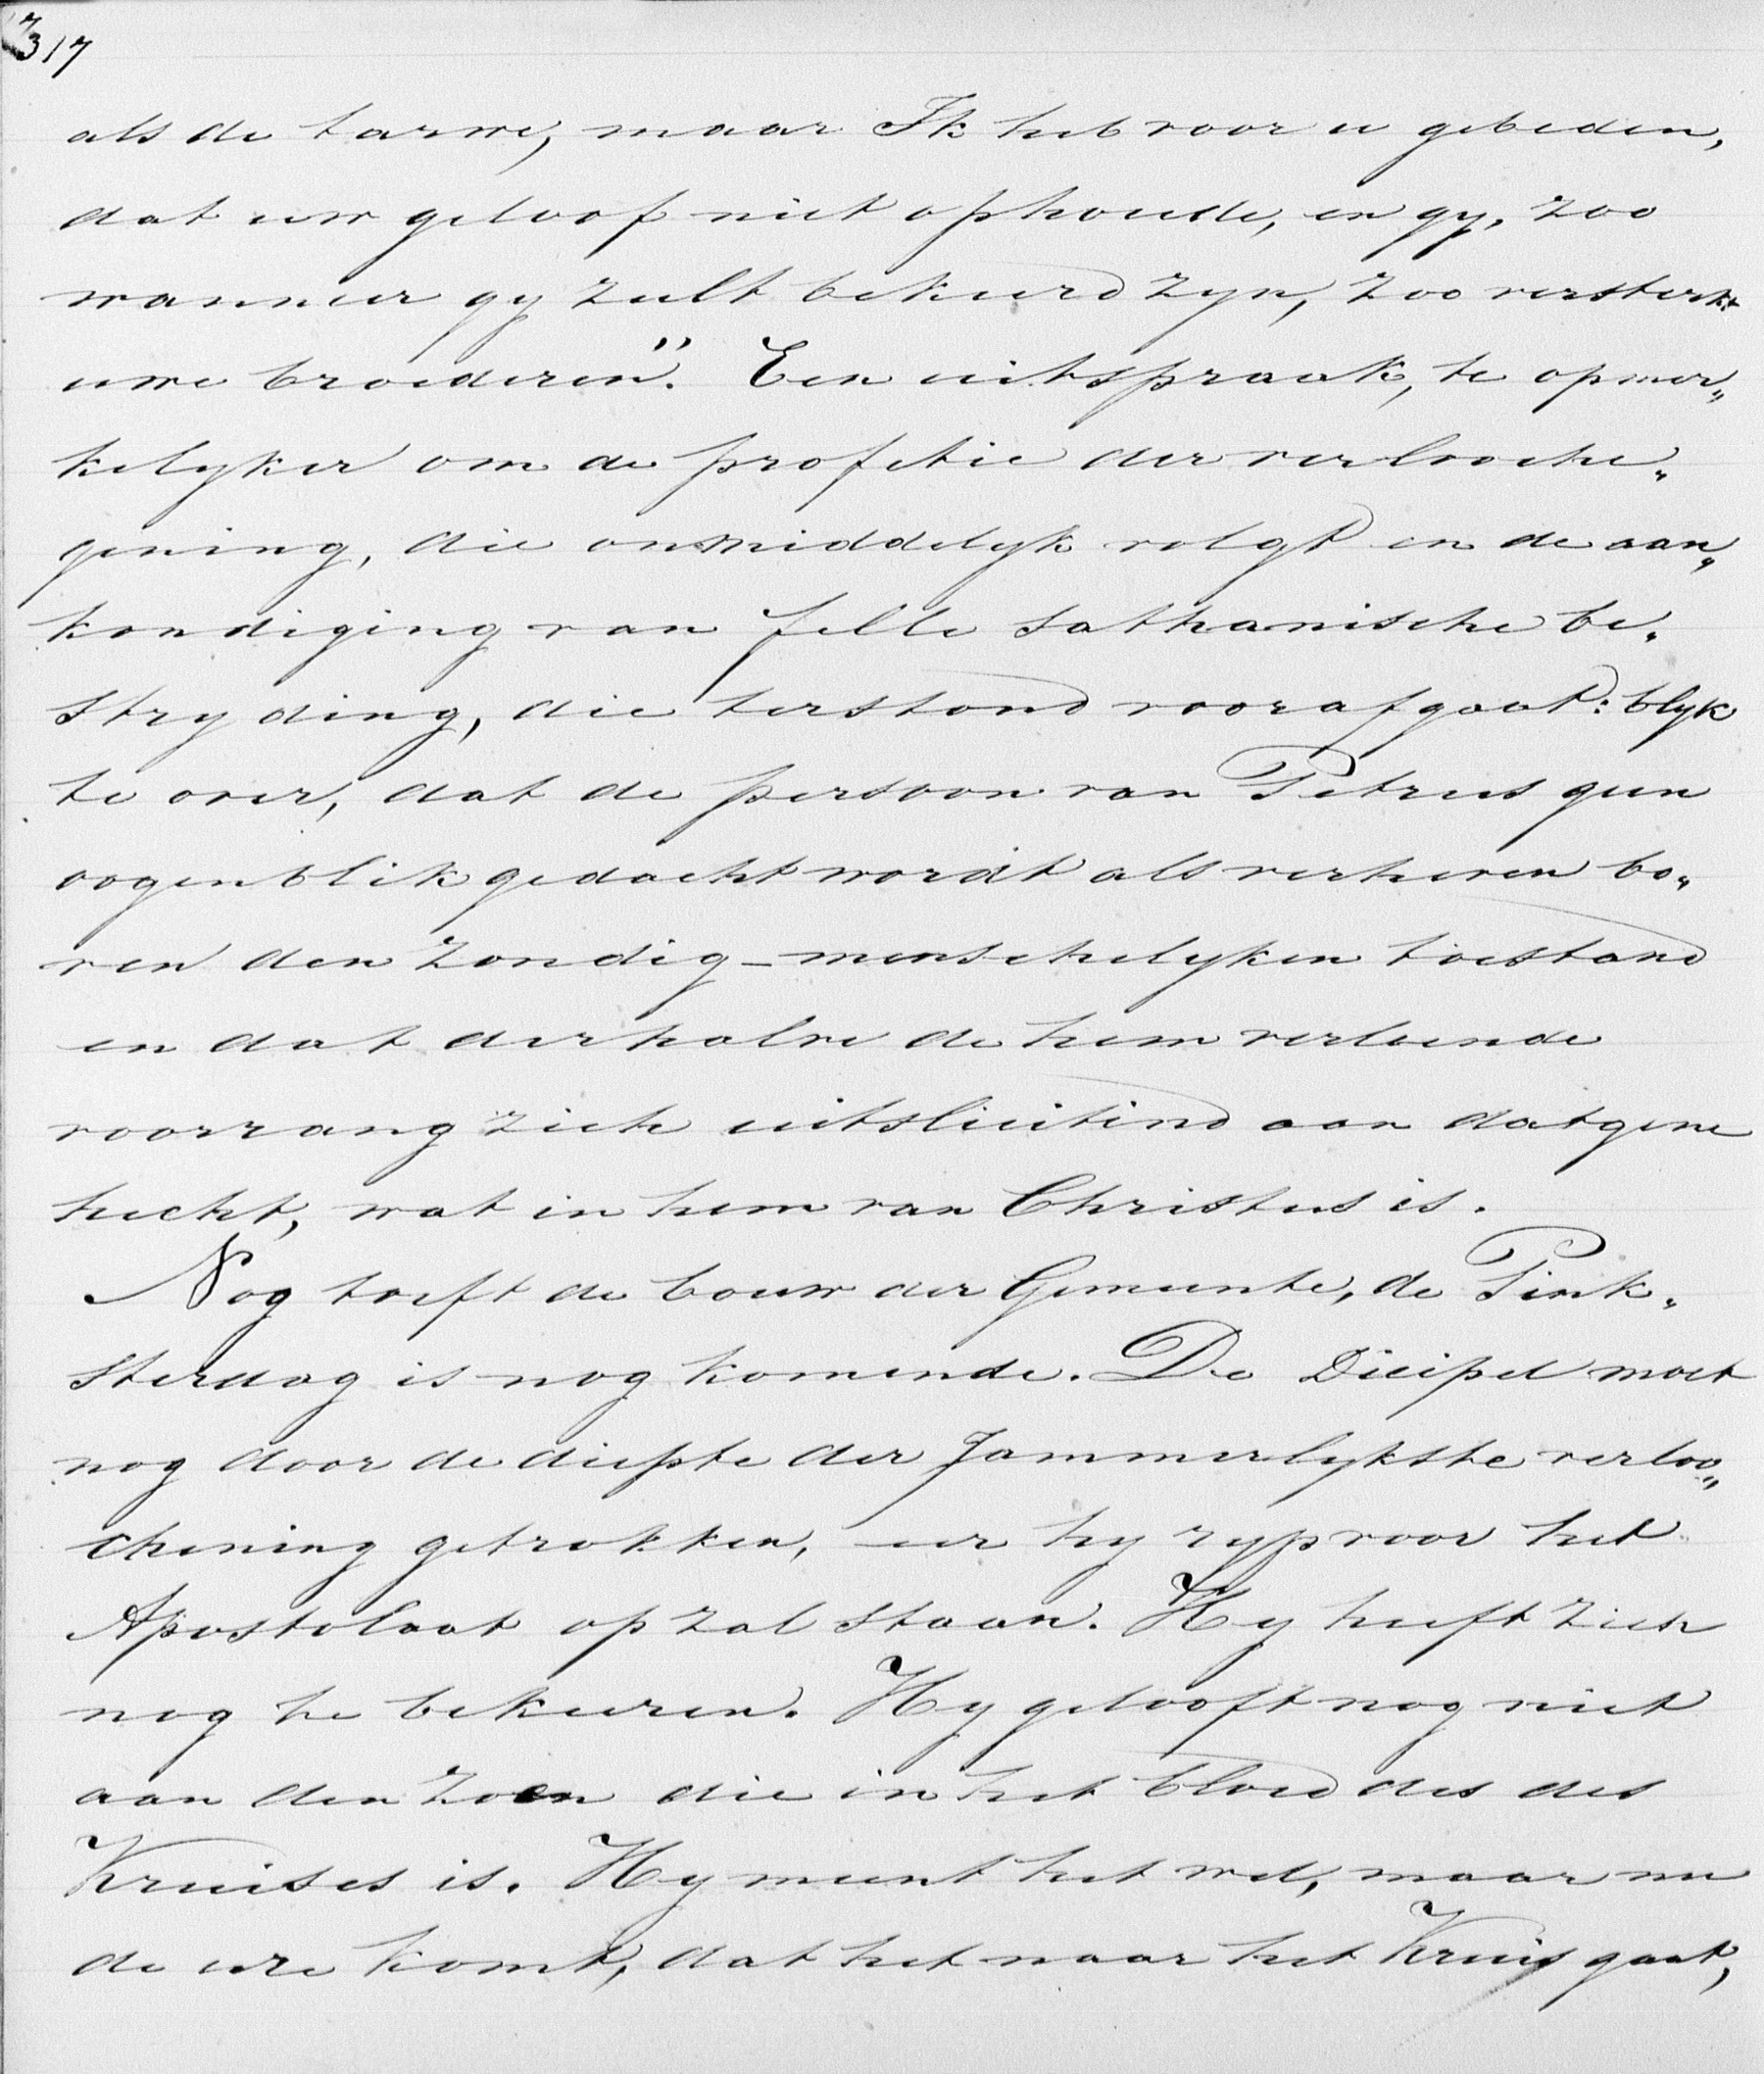 317
als de tarwe, maar Ik heb voor u gebeden,
dat uw geloof niet ophoude, en gy, zoo
wanneer gy zult bekeerd zyn, zoo versterkt
uwe broederen". Een uitspraak, te opmer„
kelyker om de profetie der verlooche„
gening, die onmiddelyk volgt en de aan„
kondiging van felle sathanische be„
stryding, die terstond voorafgaat: blyk
te over, dat de persoon van Petrus geen
oogenblik gedacht wordt als verheven bo„
ven den zondig-menschelyken toestand
en dat derhalve de hem verleende
voorrang zich uitsluitend aan datgene
hecht, wat in hem van Christus is.
Nog toeft de bouw der Gemeente, de Pink„
sterdag is nog komende. De Dicipel moet
nog door de diepte der Jammerlykste verloo„
chening getrokken, eer hy ryp voor het
Apostolaat op zal staan. Hy heeft zich
nog te bekeeren. Hy gelooft nog niet
aan den zoen die in het bloed des des
Kruises is. Hy meent het wel, maar nu
de ure komt, dat het naar het Kruis gaat,